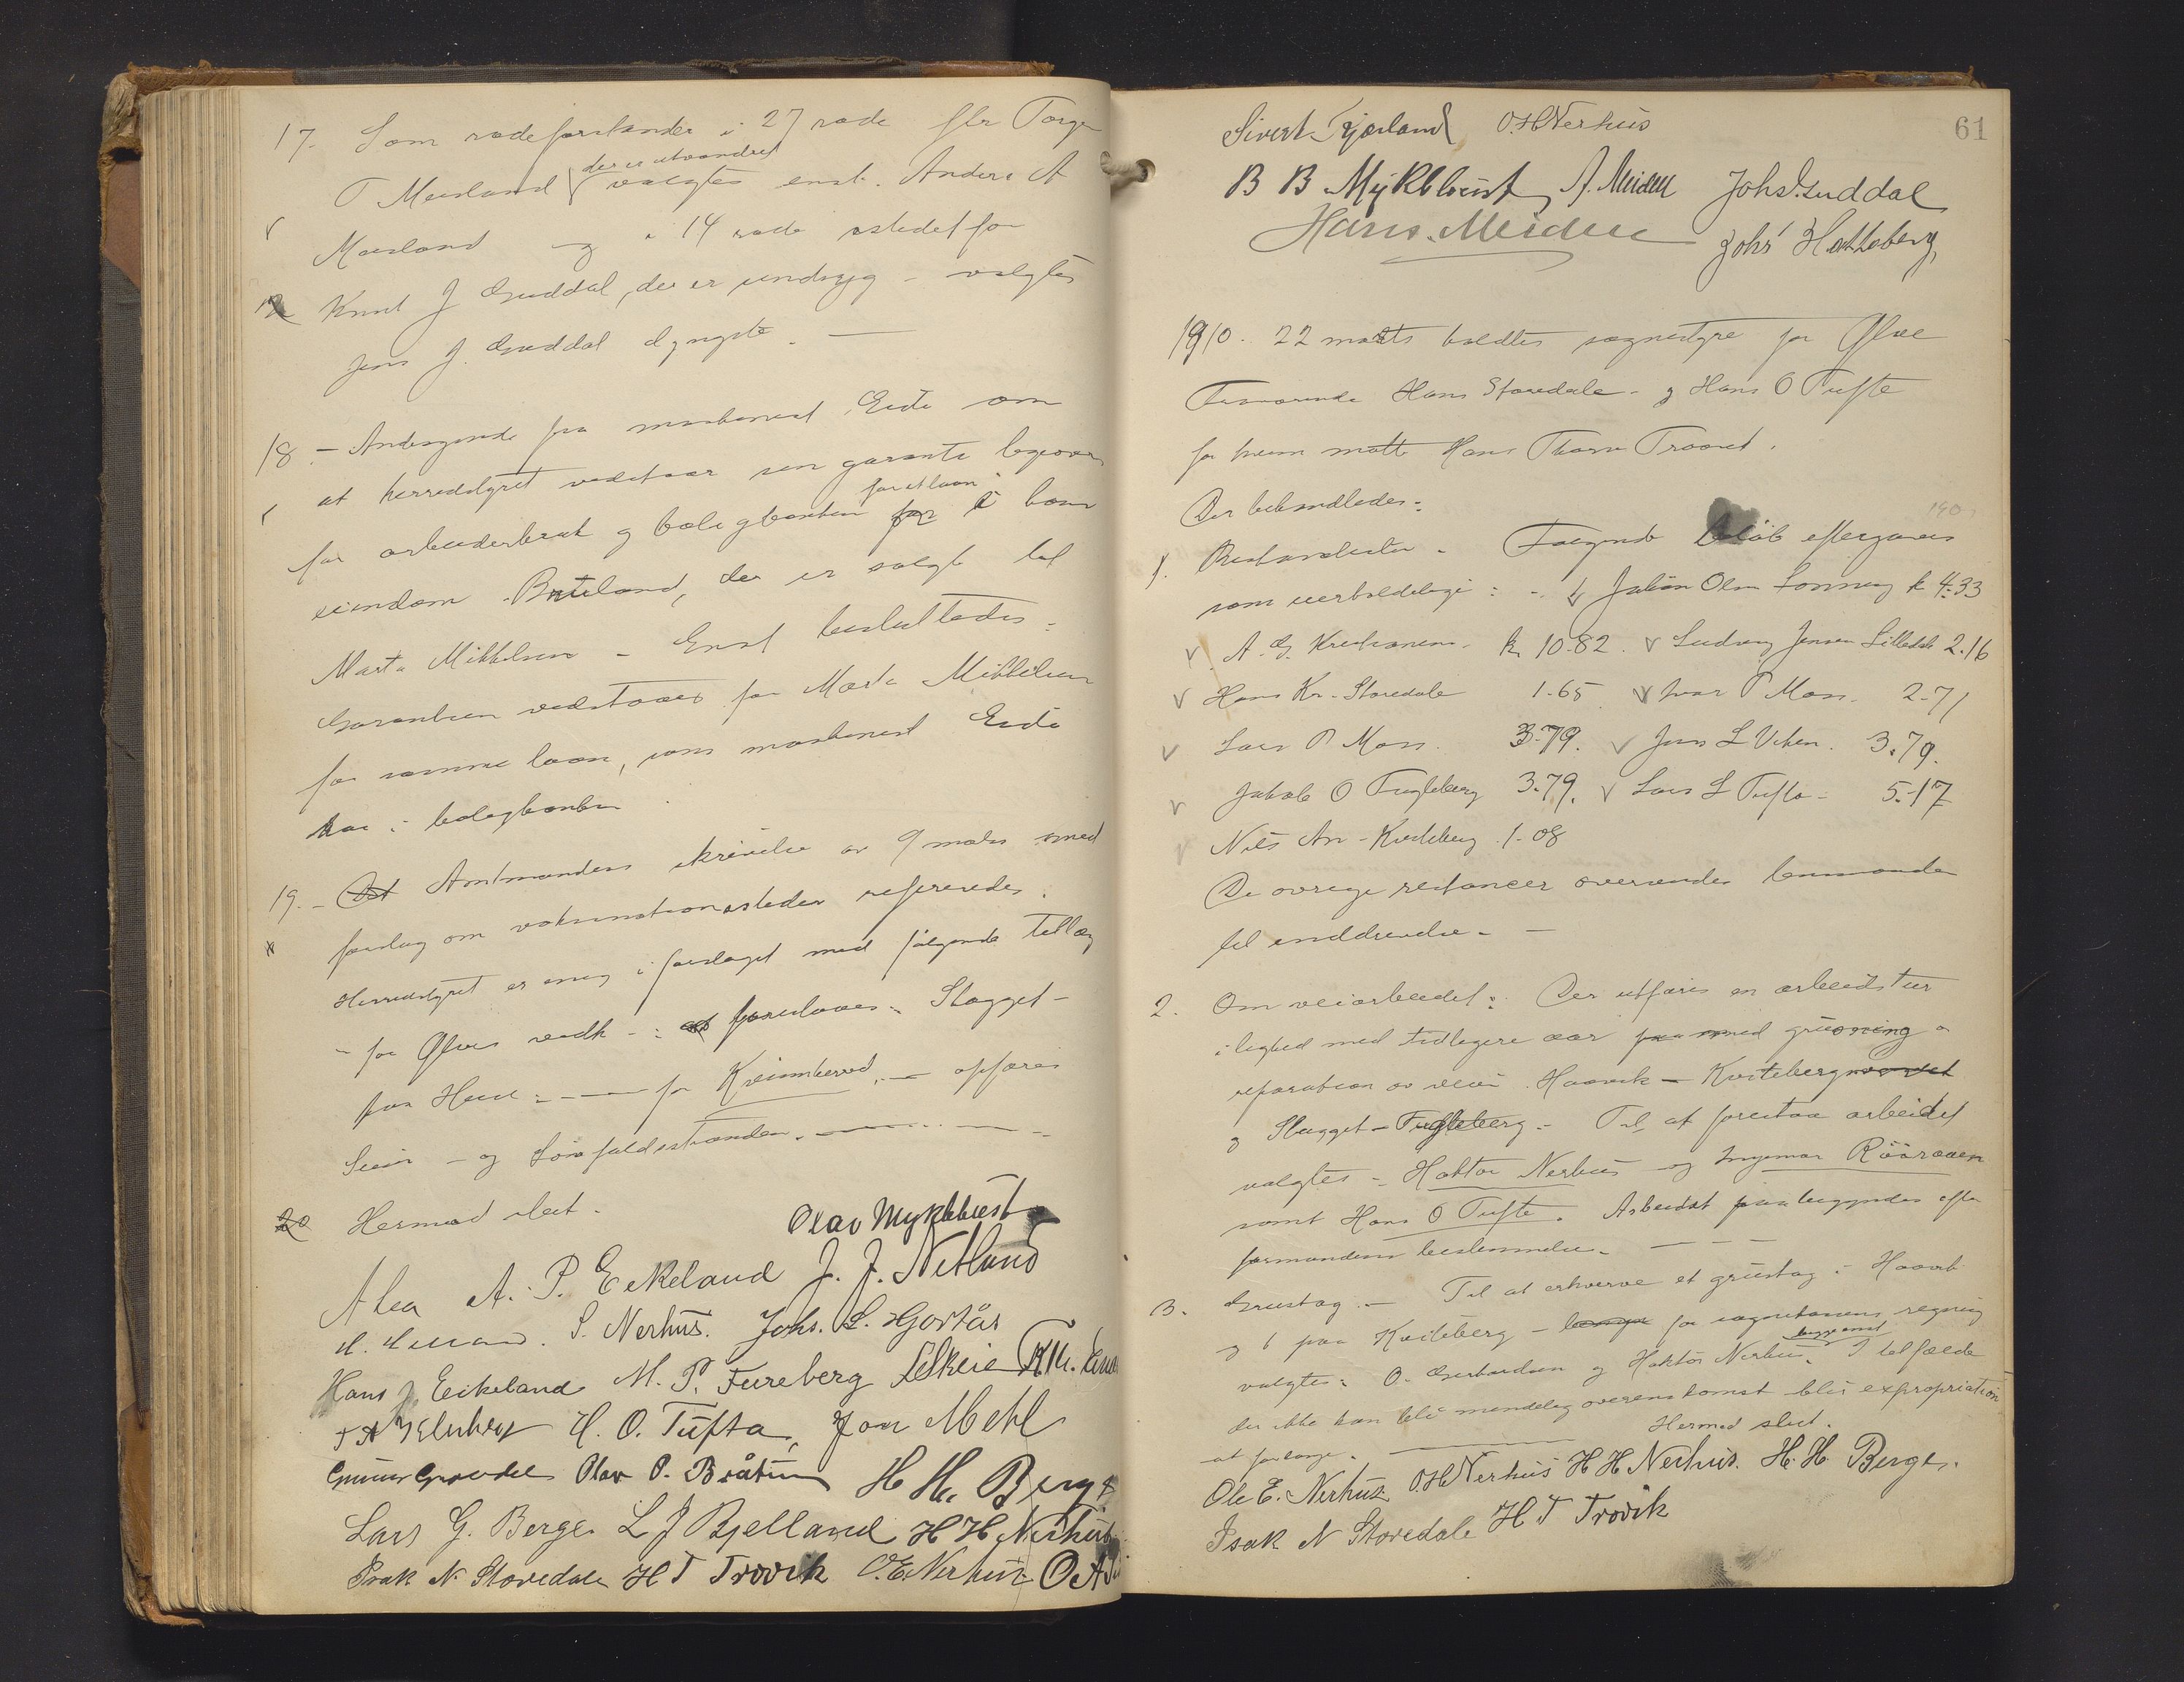 17. Som rodeforstander i 27 rode for Torger
T Mæsland der er utvandret valgtes enst. Anders A
Mæsland og i 14 rode istedetfor
Knut J Guddal, der er undsyg - valgtes
Jens J. Guddal d yngste. -
18. - Andragende fra maskinist Eide om
at herredstyret vedstaar sin garanti ligeoverfor
for arbeiderbruk og boligbanken for et laan i hans
eiendom Bruteland, der er solgt til
Marta Mikkelsen - Enst besluttedes:
Garantien vedstaaes for Marta Mikkelsen
for samme laan, som maskinist Eide
har i boligbanken.
19. - Det Amtmandens skrivelse av 9 mars med
forslag om vaksinationssteder refereredes.
Herredstyret er enig i forslaget med følgende tillæg
- for Ølves vedk -: at foreslaaes: Slagget -
paa Huse: - for Kvinnherred - opføres
Seim - og Sørfuldestranden.
20 Hermed slut.
Olav Myklebust
A. P. Eikeland J. J. Netland
S. Nerhus. Johs. L. Hjortås
Hans J. Eikeland M. P. Fureberg L Skeie
H. O. Tufta, Jon Mehl
Gunnar Grovdal Olav O. Bråtun H H. Berge
Lars G. Berge. L J Bjelland H H Nerhus
Isak N Storedale H T Trovik O.E. Nerhus
61
Sivert Fjærland O.H Nerhus
B B Myklebust, A. Meidell Johs J. Guddal
Hans Meidell Johs Hatteberg,
1910. 22 marts holdtes sognestyre for Ølve
Fraværende Hans Storedale - og Hans O Tufte
for hvem møtte Hans Thorn Troaret.
Der behandledes:
1. Restanselister - Følgende beløb eftergives
som uerholdelige: - Jakob Olsen Lønning k 4.33
A. G. Kristiansen - k. 10.82. Ludvig Jensen Lilledal 2.16
Hans Kr. Storedale 1.65 Ivar P Moss. 2.71
Lars P Moss. 3.79. Jens L Viken. 3.79.
Jakob O Fugleberg 3.79. Lars L Tufte - 5.17
Nils An - Kviteberg 1.08
De øvrige restancer oversendes lensmanden
til inddrivelse. -
2. Om veiarbeidet: Der utføres en arbeidstur
i lighed med tidligere aar paa med grusning og
reparation av veien Haavik - Kviteberg
og Slagget - Fugleberg. - Til at forestaa arbeidet
valgtes - Haktor Nerhus og Ingemar Rööraaen
samt Hans O Tufte. Arbeidet paabegyndes efter
formandens bestemmelse. -
3. Grustag. - Til at erhverve et grustag i Haavik
og 1 paa Kviteberg - for sognekassens regning
valgtes: O. Gerhardsen og Haktor Nerhus. begge enst I tilfælde
der ikke kan bli mindelig overenskomst blir expropriation
at forlange. Hermed slut.
Ole E. Nerhus O.H Nerhus H H Nerhus. H. H. Berge.
Isak N Storedale H T Trovik